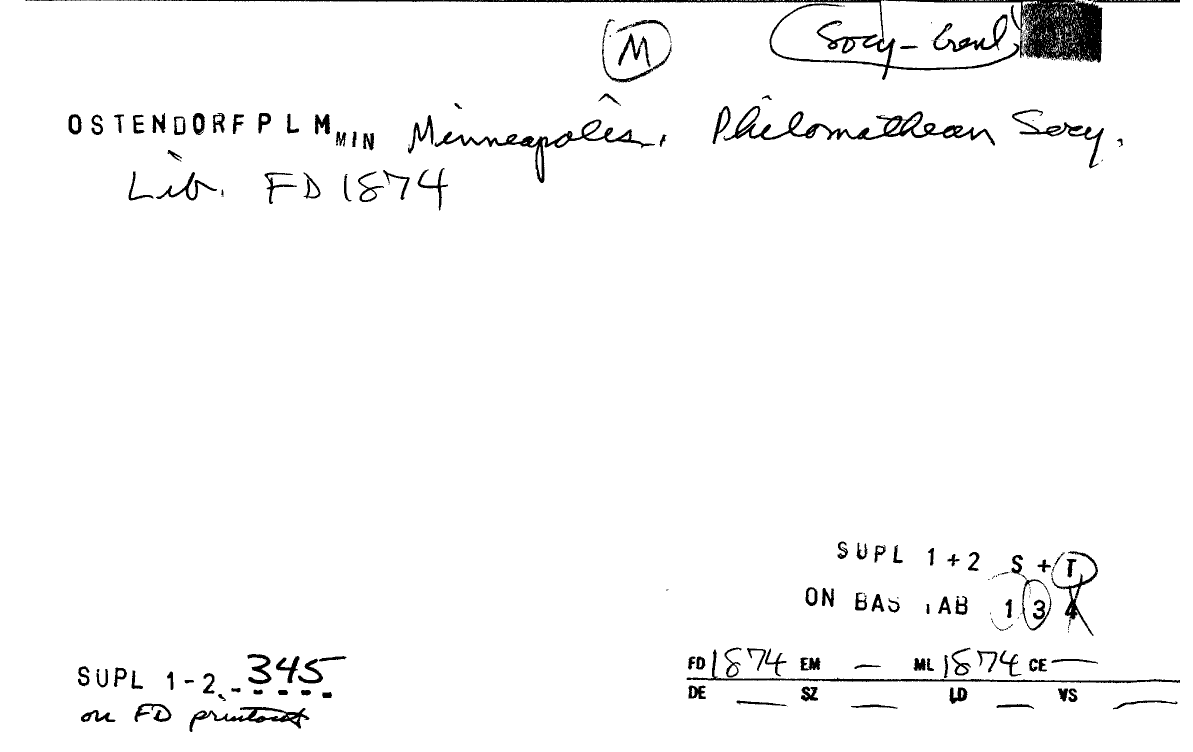 M Socy-Genl
OSTENDORF P L M MIN Minneapolis. Philomathean Socy.
Lib. FD 1874
SUPL 1+2 S + T
ON BAS TAB 1 3 4
SUPL 1-2 345
on FD printout
FD 1874 EM — ML 1874 CE —
DE — SZ — LD — VS —